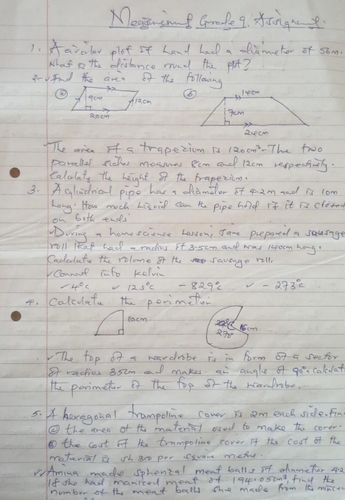 Measurement Grade 9, Assignment.
1. A circular plot of land had a diameter of 50m.
What is the distance round the plot?
2. Find the area of the following
a 9cm 12cm 20cm
b 14cm 7cm 24cm
The area of a trapezium is 120cm². The two
parallel sides measures 8cm and 12cm respectively.
Calculate the height of the trapezium.
3. A cylindrical pipe has a diameter of 4.2m and is 10m
long. How much liquid can the pipe hold if it is closed
on both ends
During a homescience lesson, Jane prepared a sausage
roll that had a radius of 3.5cm and was long.
Calculate the volume of the sausage roll.
Convert into Kelvin
4°c 123°c -829°c -273°c
4. Calculate the perimeter
10cm 270°
The top of a wardrobe is in form of a sector
of radius 35cm and makes an angle of 90°. Calculate
the perimeter of the top of the wardrobe.
5. A hexagonal trampoline cover is 2m each side. Find
a the area of the material used to make the cover.
b the cost of the trampoline cover if the cost of the
material is sh per square metre.
Amina made spherical meat balls of diameter
If she had minced meat of find the
number of the meat balls she made from the